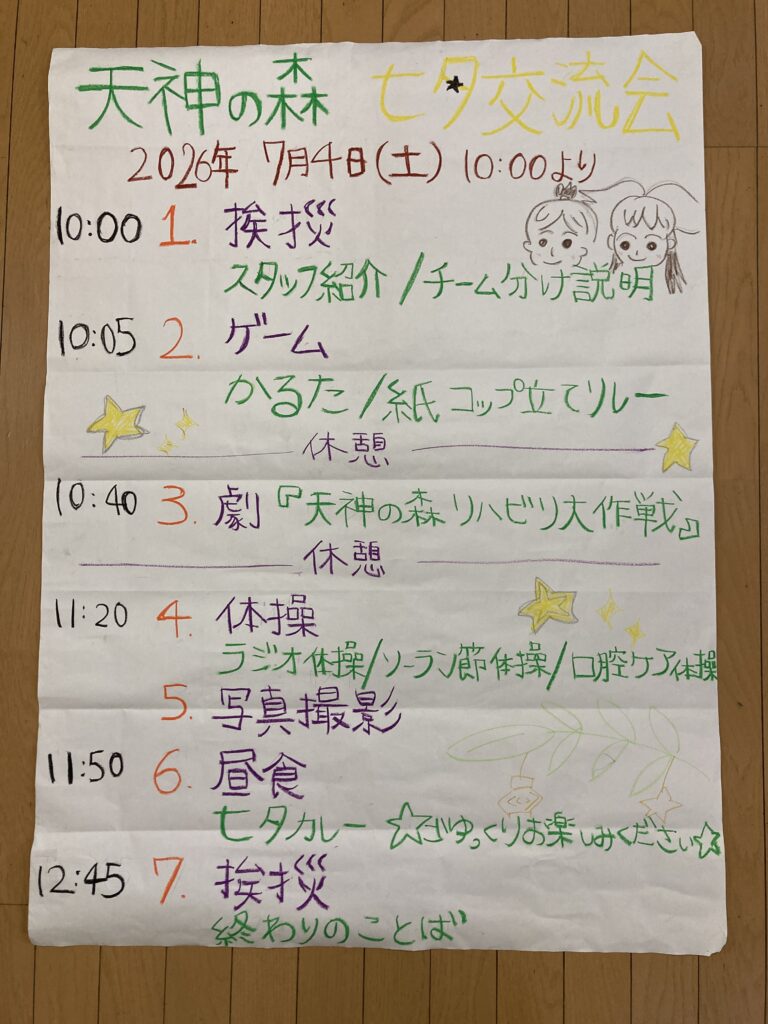 天神の森 七夕交流会
2026年 7月4日(土) 10:00より
10:00 1. 挨拶
スタッフ紹介/チーム分け説明
10:05 2. ゲーム
かるた/紙コップ立てリレー
休憩
10:40 3. 劇『天神の森リハビリ大作戦』
休憩
11:20 4. 体操
ラジオ体操/ソーラン節体操/口腔ケア体操
5. 写真撮影
11:50 6. 昼食
七夕カレー ☆ごゆっくりお楽しみください☆
12:45 7. 挨拶
終わりのことば